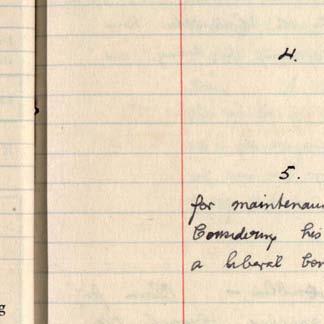 4.
5.
for maintenan
Considering his
a liberal bon
g